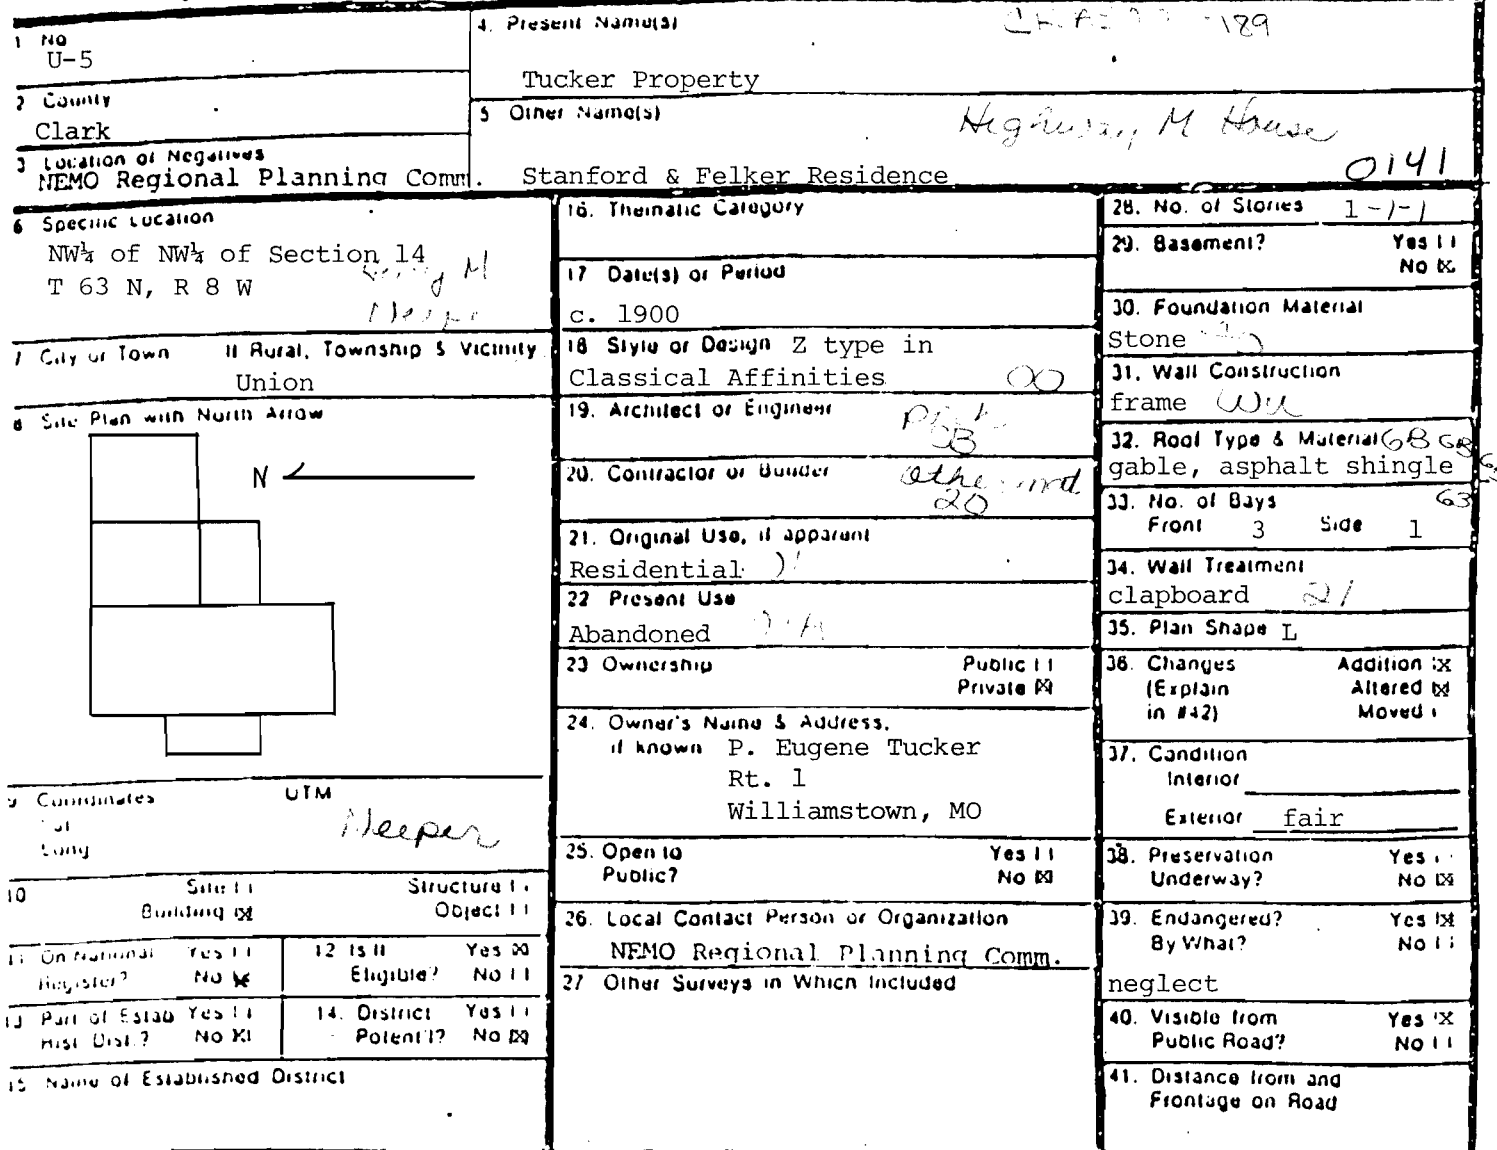 1 No
U-5
4. Present Name(s)
189
Tucker Property
2 County
Clark
5 Other Name(s)
Highway M House
3 Location of Negatives
NEMO Regional Planning Comm.
Stanford & Felker Residence
0141
6 Specific Location
NW¼ of NW¼ of Section 14
T 63 N, R 8 W
M
7 City or Town If Rural, Township & Vicinity
Union
8 Site Plan with North Arrow
N
9 Coordinates UTM
Lat
Long
Neeper
10 Site Structure
Building ☒ Object
11 On National Register? Yes No ☒
12 Is It Eligible? Yes ☒ No
13 Part of Estab Hist. Dist.? Yes No ☒
14. District Potent'l? Yes No ☒
15 Name of Established District
16. Thematic Category
17 Date(s) or Period
c. 1900
18 Style or Design Z type in
Classical Affinities 00
19. Architect or Engineer
20. Contractor or Builder
20
21. Original Use, if apparent
Residential
22 Present Use
Abandoned
23 Ownership Public
Private ☒
24. Owner's Name & Address,
if known P. Eugene Tucker
Rt. 1
Williamstown, MO
25. Open to Yes
Public? No ☒
26. Local Contact Person or Organization
NEMO Regional Planning Comm.
27 Other Surveys in Which Included
28. No. of Stories 1-1-1
29. Basement? Yes
No ☒
30. Foundation Material
Stone
31. Wall Construction
frame WU
32. Roof Type & Material GB GB
gable, asphalt shingle
33. No. of Bays 63
Front 3 Side 1
34. Wall Treatment
clapboard 21
35. Plan Shape L
36. Changes Addition ☒
(Explain Altered ☒
in #42) Moved
37. Condition
Interior
Exterior fair
38. Preservation Yes
Underway? No ☒
39. Endangered? Yes ☒
By What? No
neglect
40. Visible from Yes ☒
Public Road? No
41. Distance from and
Frontage on Road